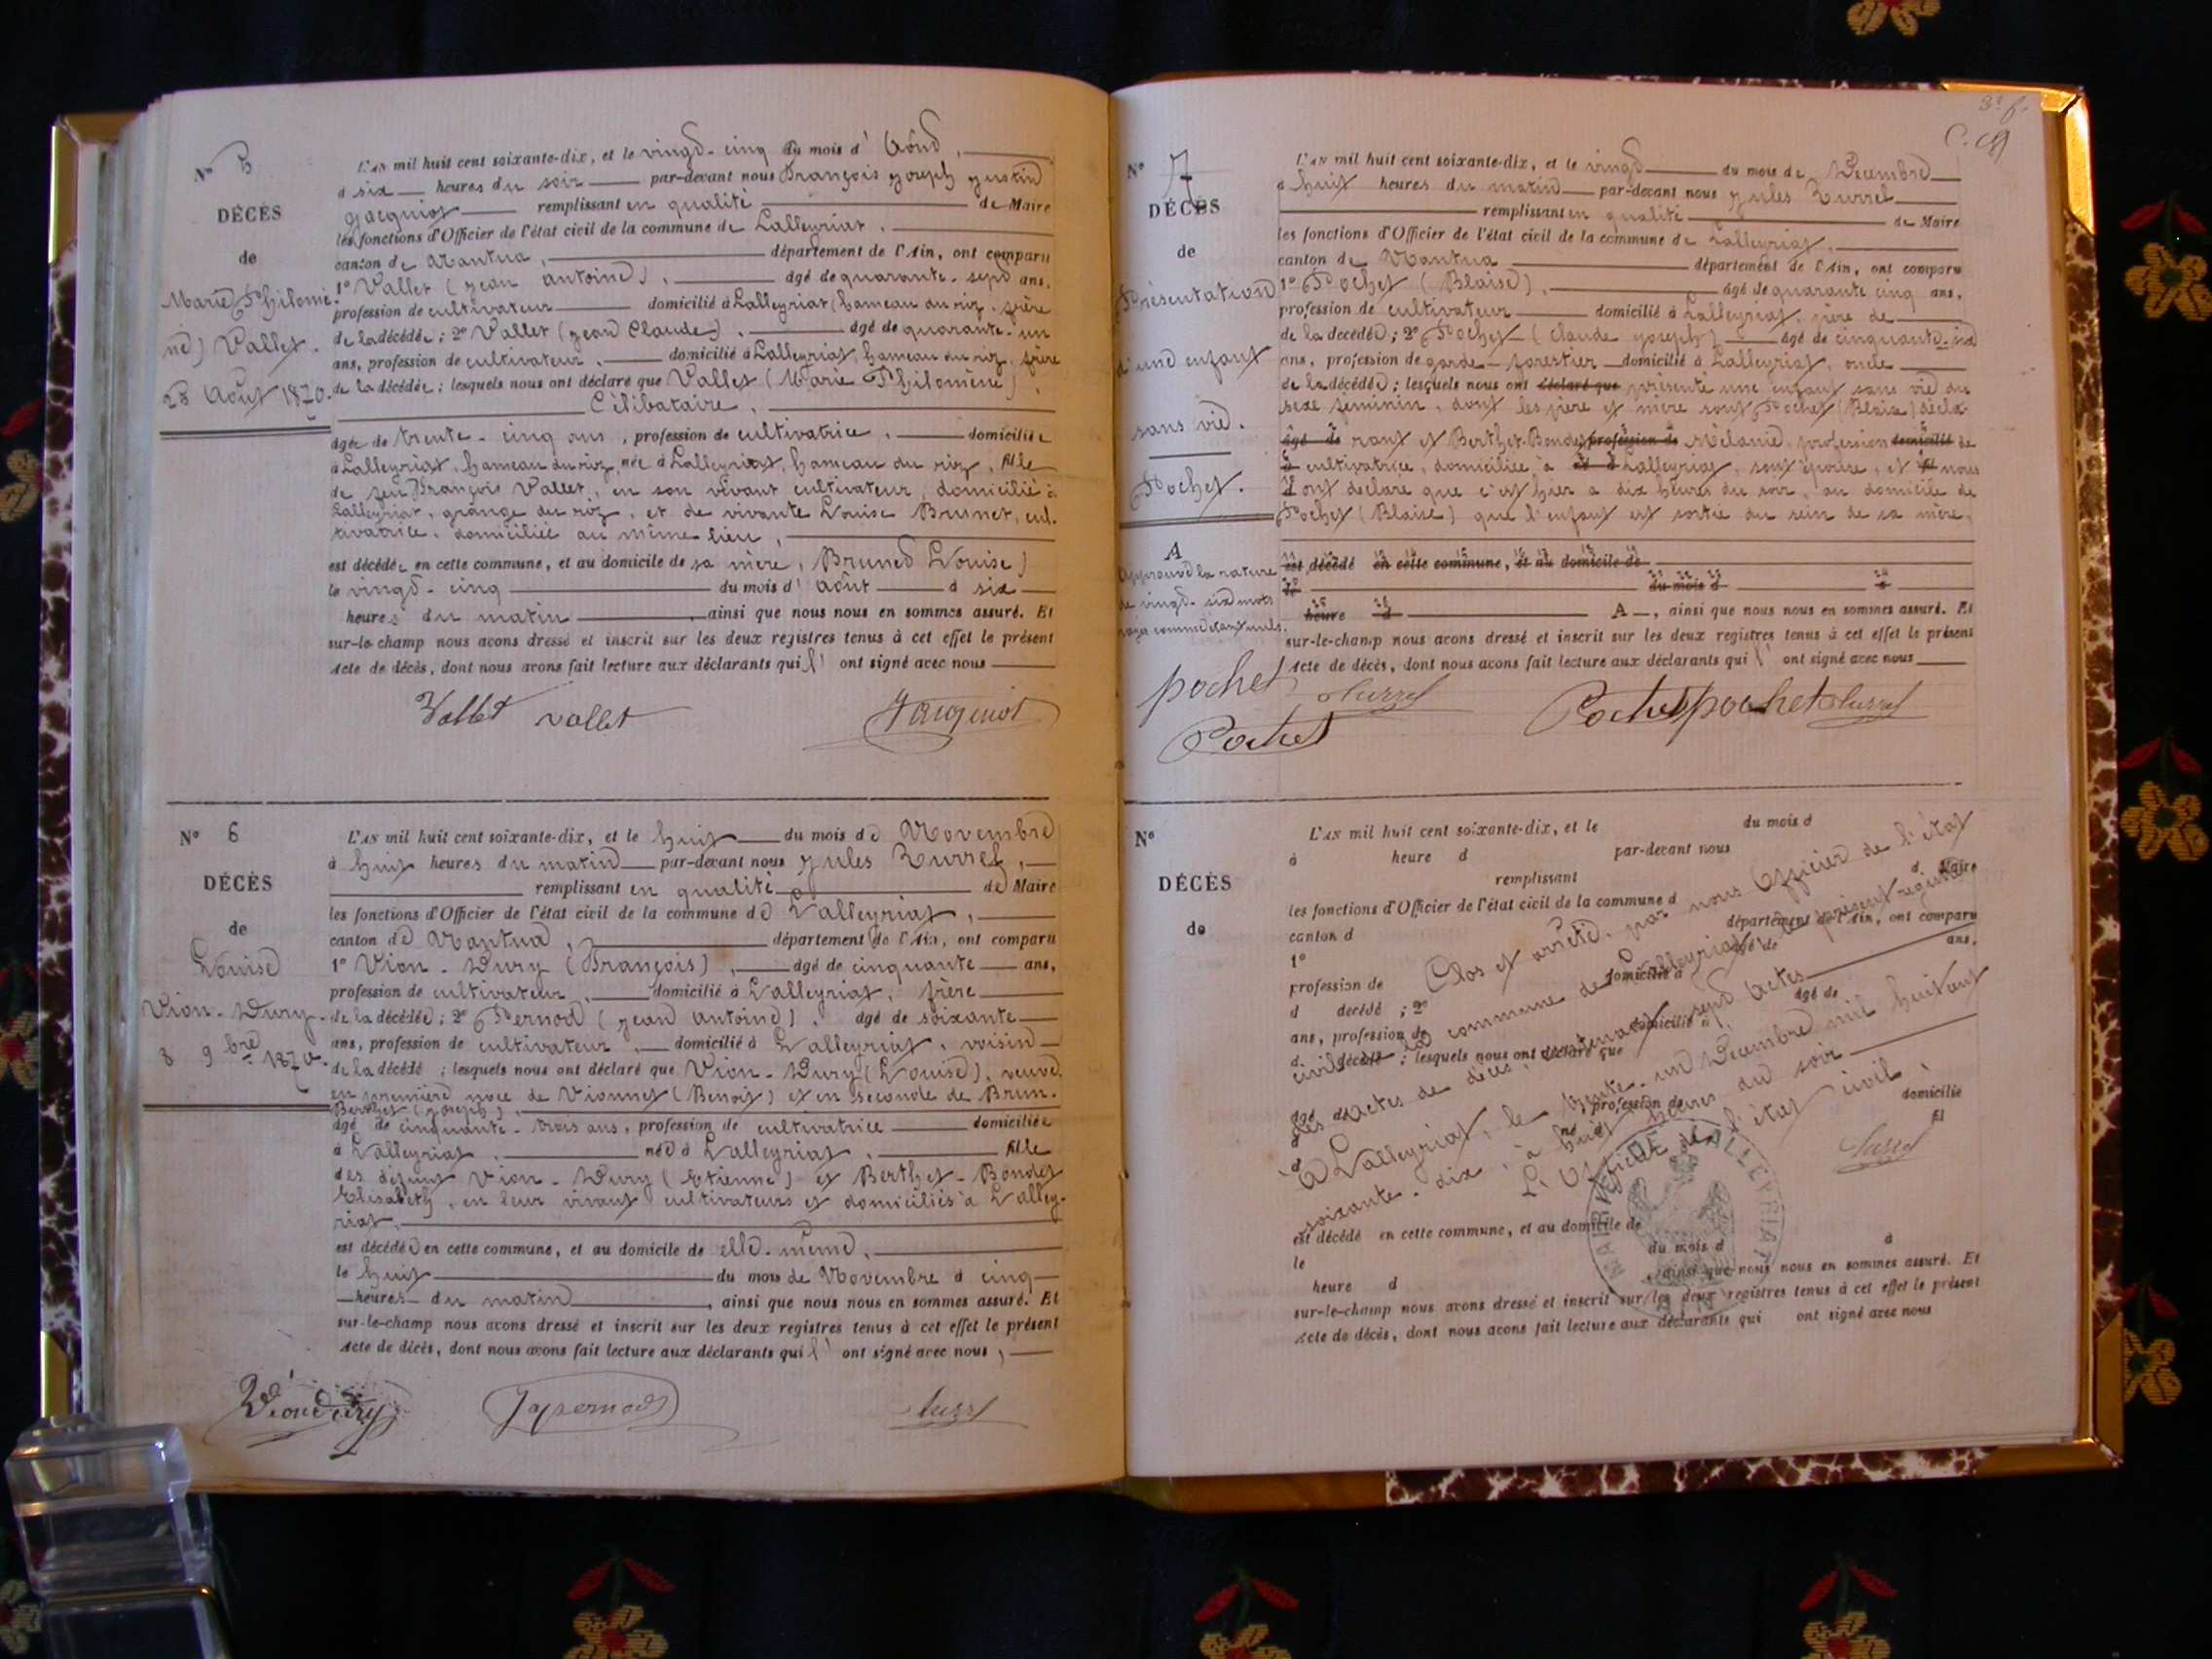 N° 5
DÉCÈS
de
Marie Philomè-
ne Vallet.
25 Août 1870.
L'AN mil huit cent soixante-dix, et le vingt-cinq du mois d'Août,
à six heures du soir par-devant nous François Joseph Justin
Jacquiot remplissant en qualité de Maire
les fonctions d'Officier de l'état civil de la commune de Lalleyriat,
canton de Nantua, département de l'Ain, ont comparu
1° Vallet (Jean Antoine), âgé de quarante-sept ans,
profession de cultivateur domicilié à Lalleyriat (hameau du riz, frère
de la décédée; 2° Vallet (Jean Claude), âgé de quarante-un
ans, profession de cultivateur, domicilié à Lalleyriat, hameau du riz, frère
de la décédée; lesquels nous ont déclaré que Vallet (Marie Philomène),
Célibataire,
âgée de trente-cinq ans, profession de cultivatrice, domiciliée
à Lalleyriat, hameau du riz, née à Lalleyriat, hameau du riz, fille
de feu François Vallet, en son vivant cultivateur, domicilié à
Lalleyriat, grange du riz, et de vivante Louise Brunet, cul-
tivatrice, domiciliée au même lieu,
est décédée en cette commune, et au domicile de sa mère, (Brunet Louise)
le vingt-cinq du mois d'août à six
heures du matin, ainsi que nous nous en sommes assuré. Et
sur-le-champ nous avons dressé et inscrit sur les deux registres tenus à cet effet le présent
Acte de décès, dont nous avons fait lecture aux déclarants qui l'ont signé avec nous
Vallet vallet Jacquiot
N° 6
DÉCÈS
de
Louise
Vion-Dury.
8 9bre 1870.
L'AN mil huit cent soixante-dix, et le huit du mois de Novembre
à huit heures du matin par-devant nous Jules Turrel,
remplissant en qualité de Maire
les fonctions d'Officier de l'état civil de la commune de Lalleyriat,
canton de Nantua, département de l'Ain, ont comparu
1° Vion-Dury (François), âgé de cinquante ans,
profession de cultivateur, domicilié à Lalleyriat, frère
de la décédée; 2° Pernod (Jean Antoine), âgé de soixante
ans, profession de cultivateur, domicilié à Lalleyriat, voisin
de la décédé; lesquels nous ont déclaré que Vion-Dury (Louise), veuve
en première noce de Vionnet (Benoit) et en seconde de Brun-
Berthet (Joseph),
âgé de cinquante-trois ans, profession de cultivatrice domiciliée
à Lalleyriat, née à Lalleyriat, fille
des défunts Vion-Dury (Etienne) et Berthet-Bondet
Elisabeth, en leur vivant cultivateurs et domiciliés à Lalley-
riat,
est décédée en cette commune, et au domicile de elle-même,
le huit du mois de Novembre à cinq
heures du matin, ainsi que nous nous en sommes assuré. Et
sur-le-champ nous avons dressé et inscrit sur les deux registres tenus à cet effet le présent
Acte de décès, dont nous avons fait lecture aux déclarants qui l'ont signé avec nous,
Viondury Japernod Turrel
3e f.
N° 7
DÉCÈS
de
Présentation
d'une enfant
sans vie.
Pochet.
A
Approuvé la rature
de vingt-six mots
rayés comme étant nuls.
L'AN mil huit cent soixante-dix, et le vingt du mois de Décembre
à huit heures du matin par-devant nous Jules Turrel
remplissant en qualité de Maire
les fonctions d'Officier de l'état civil de la commune de Lalleyriat,
canton de Nantua département de l'Ain, ont comparu
1° Pochet (Blaise), âgé de quarante cinq ans,
profession de cultivateur domicilié à Lalleyriat, père de
de la décédée; 2° Pochet (Claude Joseph) âgé de cinquante-six
ans, profession de garde-forestier domicilié à Lalleyriat, oncle
de la décédée; lesquels nous ont déclaré que présenté une enfant sans vie du
sexe féminin, dont les père et mère sont Pochet (Blaise) décla-
âgé de rant et Berthet-Bondet profession de Mélanie, profession domicilié de
à cultivatrice, domiciliée à Lalleyriat, son épouse, et nous
ont déclaré que c'est hier à dix heures du soir, au domicile de
Pochet (Blaise) que l'enfant est sortie du sein de sa mère,
est décédé en cette commune, et au domicile de
le du mois d à
heure d A, ainsi que nous nous en sommes assuré. Et
sur-le-champ nous avons dressé et inscrit sur les deux registres tenus à cet effet le présent
Acte de décès, dont nous avons fait lecture aux déclarants qui l'ont signé avec nous
pochet Turrel Pochet pochet Turrel
Pochet
N°
DÉCÈS
de
L'AN mil huit cent soixante-dix, et le du mois d
à heure d par-devant nous
remplissant d Maire
les fonctions d'Officier de l'état civil de la commune d
canton d département de l'Ain, ont comparu
1° âgé de ans,
profession de domicilié à
d décédé ; 2° âgé de
ans, profession de domicilié à
d décédé ; lesquels nous ont déclaré que
âgé de profession de domicilié
à né à fil
d
est décédé en cette commune, et au domicile de
le du mois d à
heure d , ainsi que nous nous en sommes assuré. Et
sur-le-champ nous avons dressé et inscrit sur les deux registres tenus à cet effet le présent
Acte de décès, dont nous avons fait lecture aux déclarants qui ont signé avec nous
Clos et arrêté, par nous Officier de l'état
civil de la commune de Lalleyriat, le présent registre
des actes de décès, contenant sept actes
A Lalleyriat, le trente-un Décembre mil huit cent
soixante-dix, à huit heures du soir
L'Officier de l'état civil,
Turrel
MAIRIE DE LALLEYRIAT
AIN